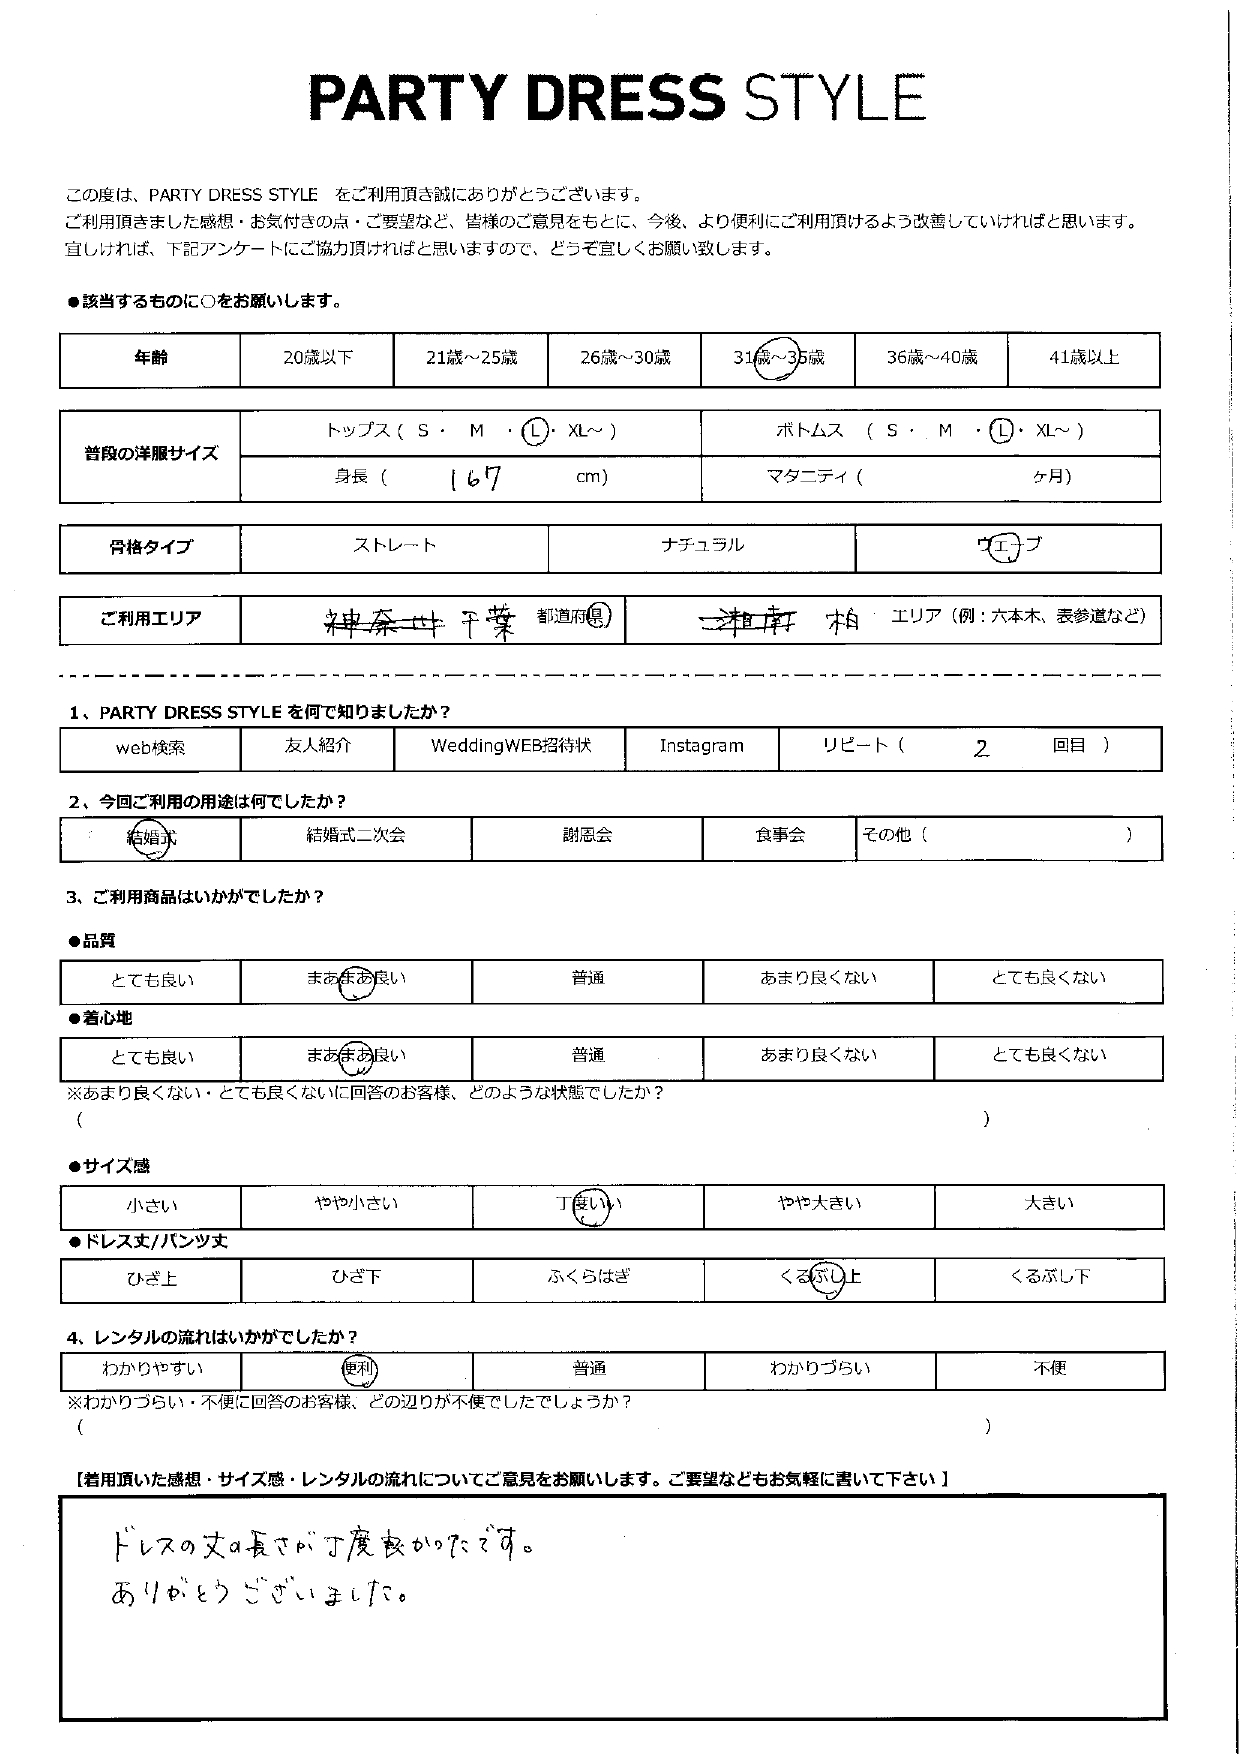 PARTY DRESS STYLE
この度は、PARTY DRESS STYLE をご利用頂き誠にありがとうございます。
ご利用頂きました感想・お気付きの点・ご要望など、皆様のご意見をもとに、今後、より便利にご利用頂けるよう改善していければと思います。
宜しければ、下記アンケートにご協力頂ければと思いますので、どうぞ宜しくお願い致します。
●該当するものに○をお願いします。
年齢 20歳以下 21歳～25歳 26歳～30歳 31歳～35歳 36歳～40歳 41歳以上
普段の洋服サイズ トップス ( S ・ M ・ L ・ XL～ ) ボトムス ( S ・ M ・ L ・ XL～ )
身長 ( 167 cm) マタニティ ( ヶ月)
骨格タイプ ストレート ナチュラル ウェーブ
ご利用エリア 神奈川 千葉 都道府県 湘南 柏 エリア（例：六本木、表参道など）
1、PARTY DRESS STYLE を何で知りましたか？
web検索 友人紹介 WeddingWEB招待状 Instagram リピート ( 2 回目 )
2、今回ご利用の用途は何でしたか？
結婚式 結婚式二次会 謝恩会 食事会 その他 ( )
3、ご利用商品はいかがでしたか？
●品質
とても良い まあまあ良い 普通 あまり良くない とても良くない
●着心地
とても良い まあまあ良い 普通 あまり良くない とても良くない
※あまり良くない・とても良くないに回答のお客様、どのような状態でしたか？
( )
●サイズ感
小さい やや小さい 丁度いい やや大きい 大きい
●ドレス丈/パンツ丈
ひざ上 ひざ下 ふくらはぎ くるぶし上 くるぶし下
4、レンタルの流れはいかがでしたか？
わかりやすい 便利 普通 わかりづらい 不便
※わかりづらい・不便に回答のお客様、どの辺りが不便でしたでしょうか？
( )
【着用頂いた感想・サイズ感・レンタルの流れについてご意見をお願いします。ご要望などもお気軽に書いて下さい 】
ドレスの丈の長さが丁度良かったです。
ありがとうございました。